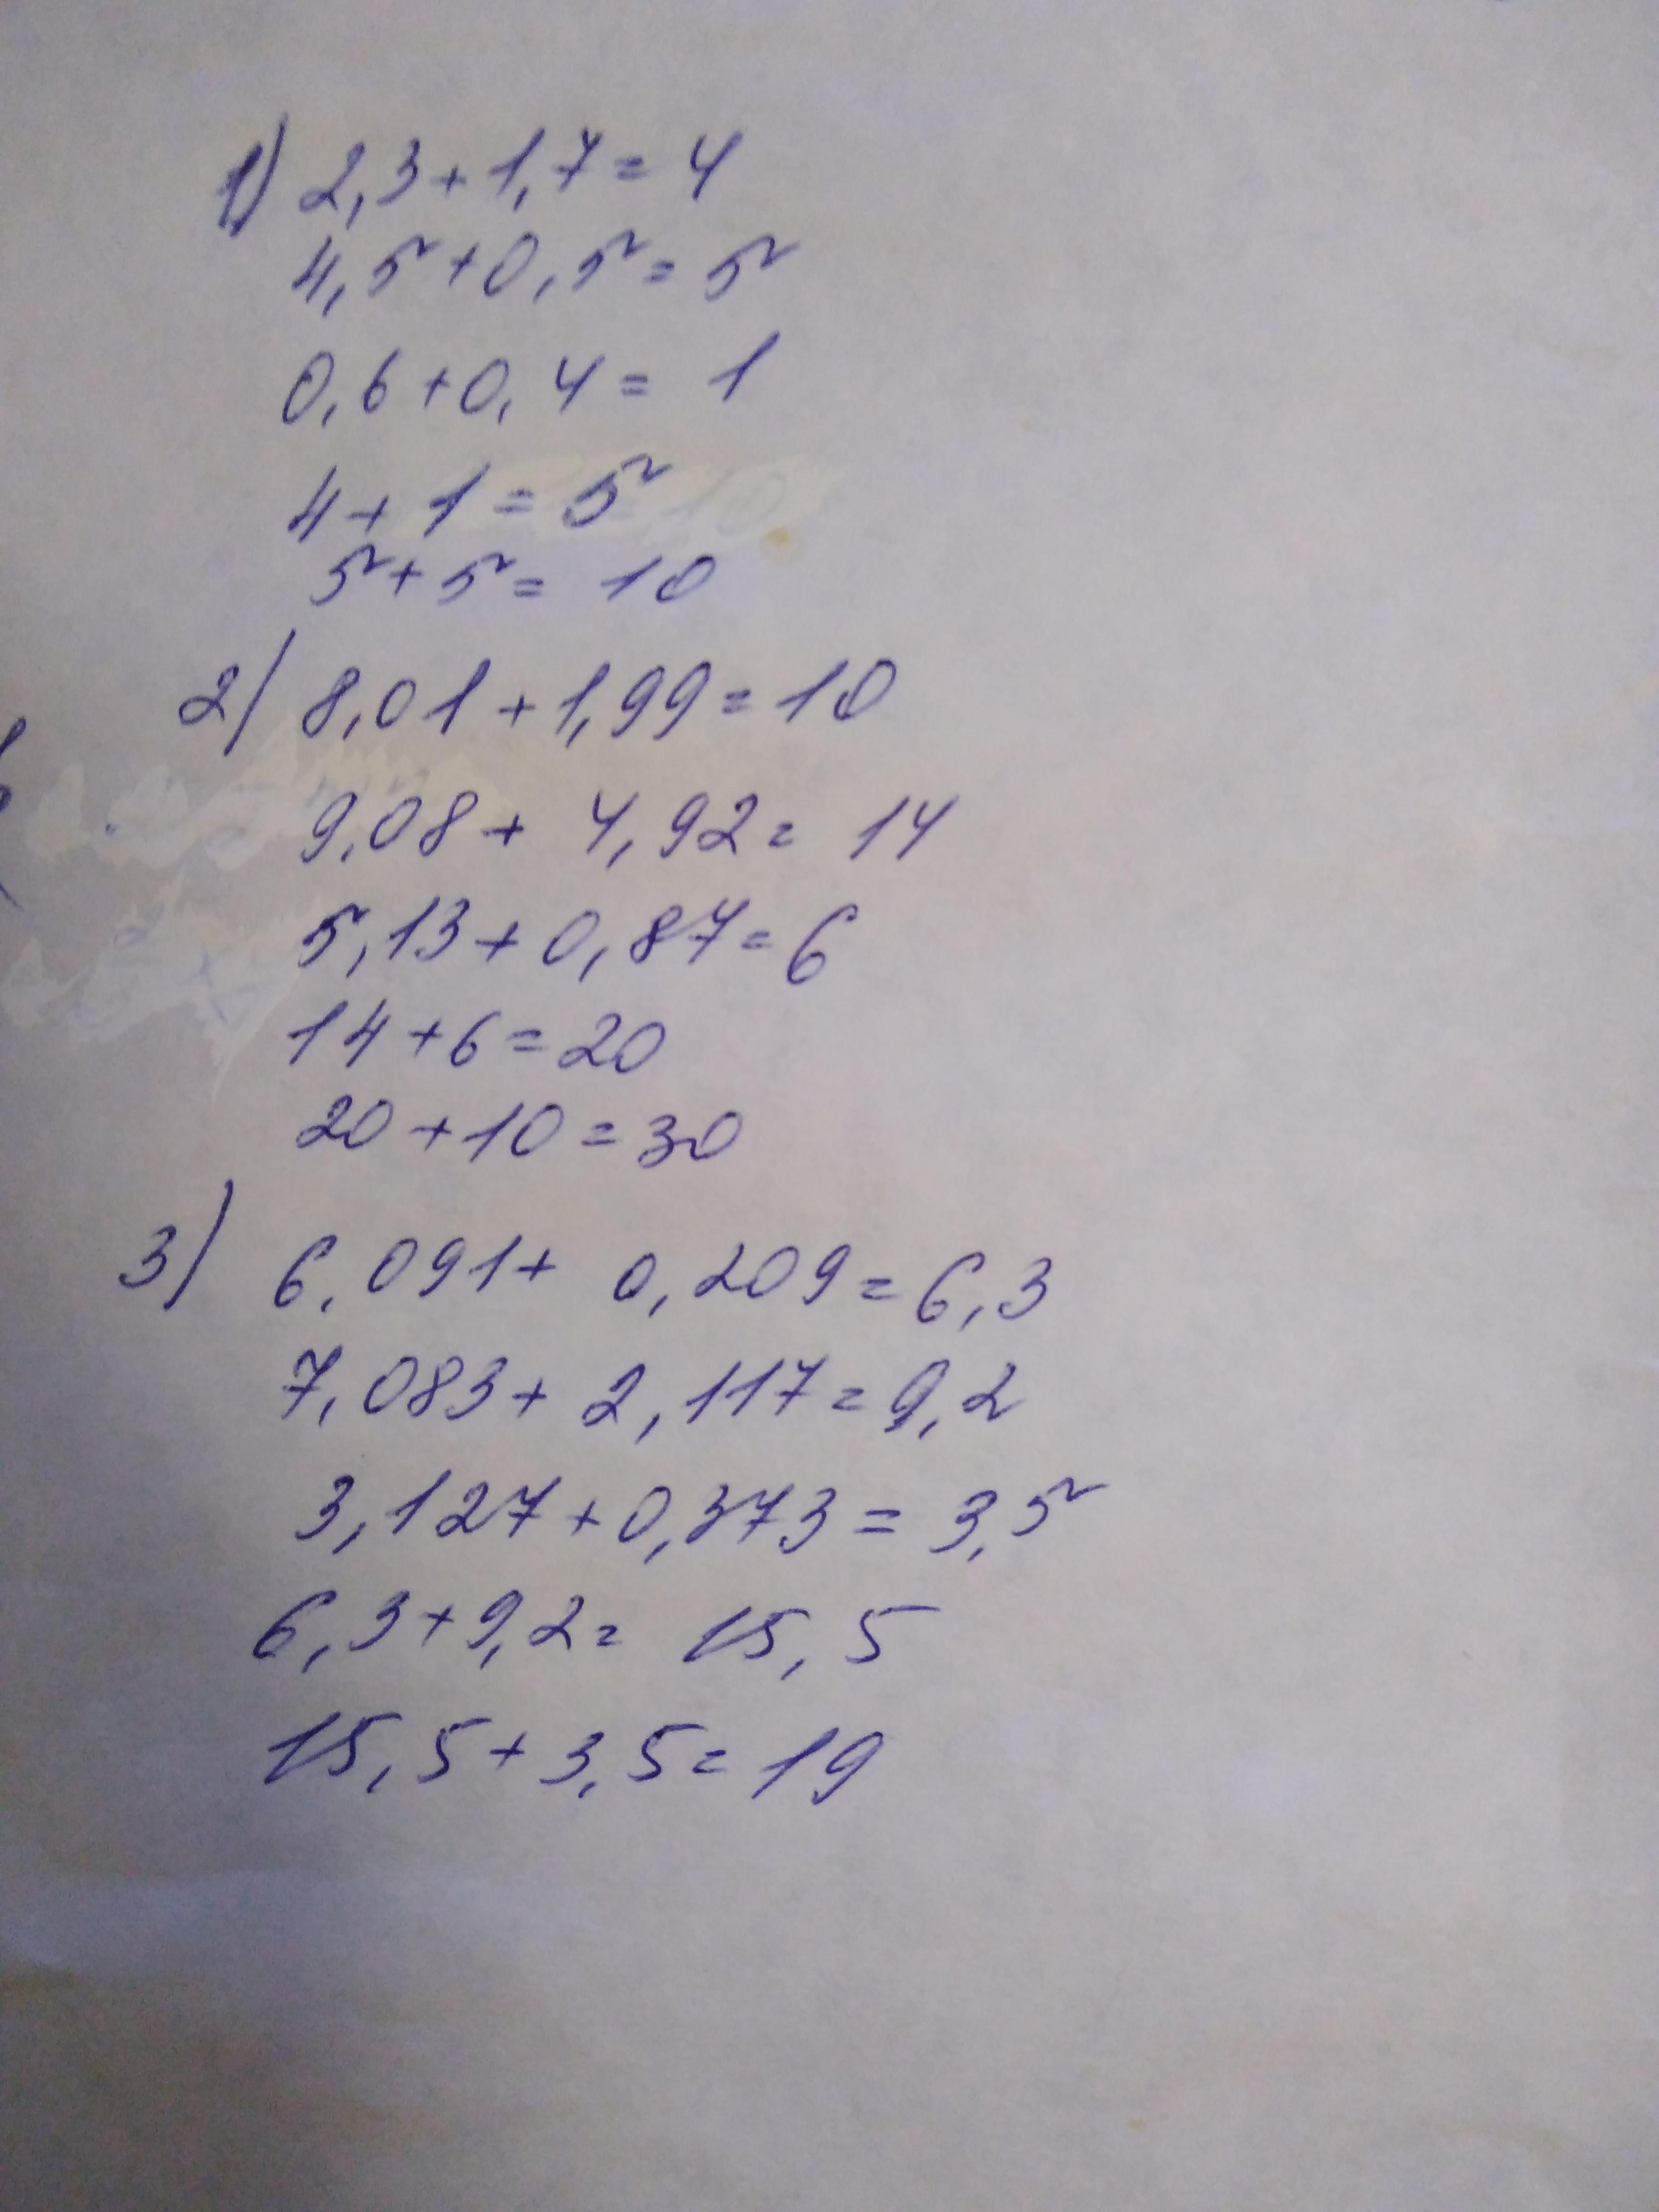 1) 2,3+1,7=4
4,5+0,5=5
0,6+0,4=1
4+1=5
5+5=10
2) 8,01+1,99=10
9,08+4,92=14
5,13+0,87=6
14+6=20
20+10=30
3) 6,091+0,209=6,3
7,083+2,117=9,2
3,127+0,373=3,5
6,3+9,2=15,5
15,5+3,5=19